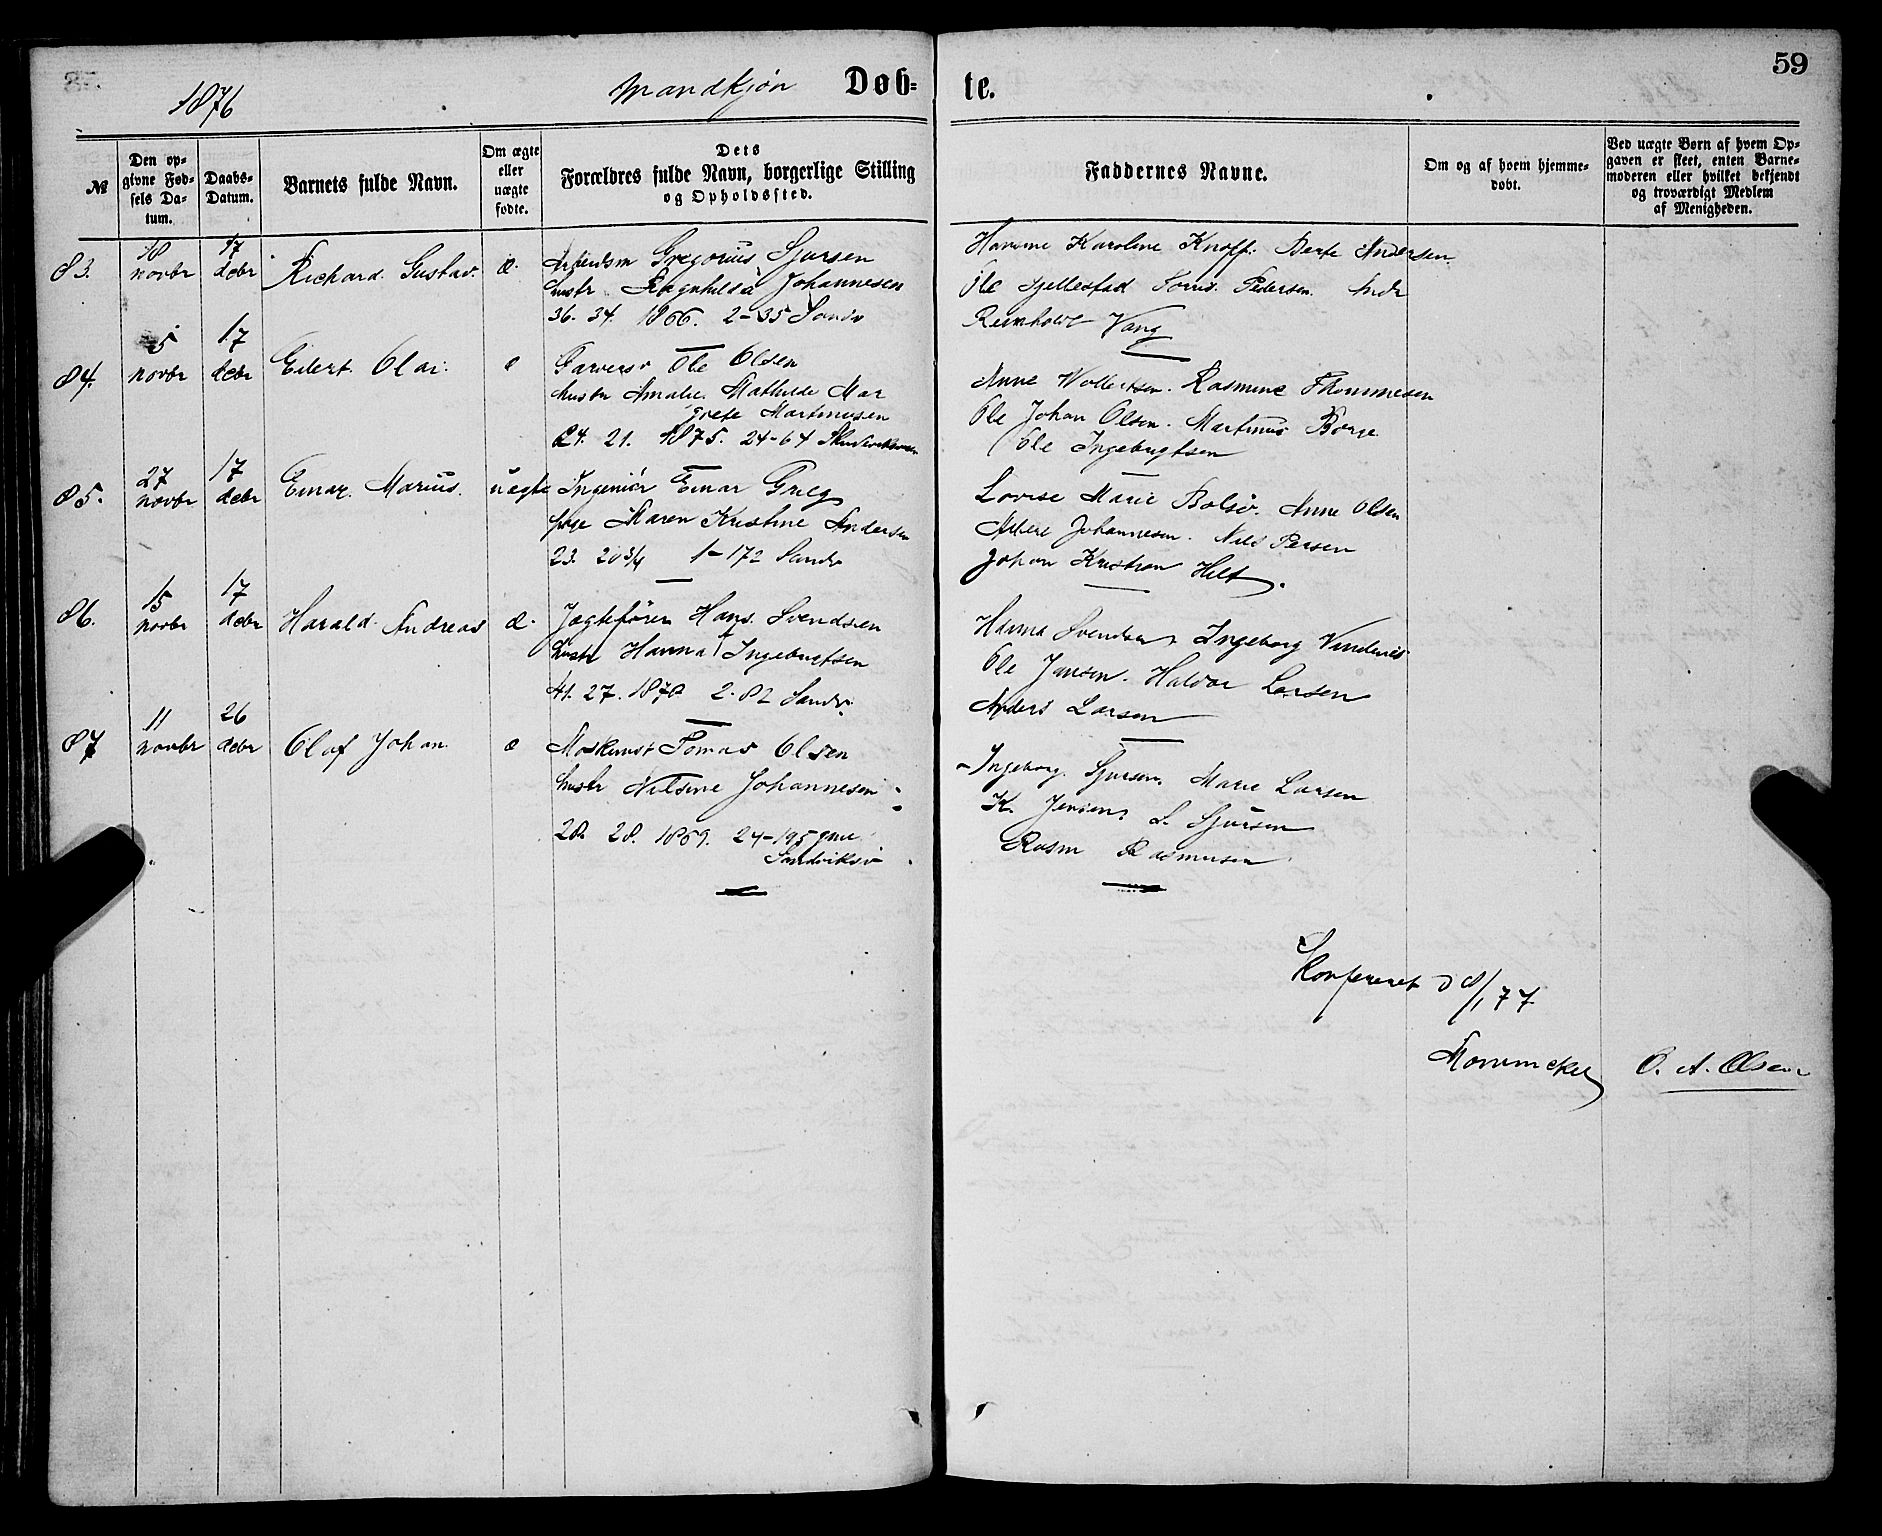 59
1876 Mandkjøn Døb-te.
№
Den op-
givne Fød-
sels Da-
tum.
Daabs-
Datum.
Barnets fulde Navn.
Om ægte
eller
uægte
fødte.
Dets
Forældres fulde Navn, borgerlige Stilling
og Opholdssted.
Faddernes Navne.
Om og af hvem hjemme-
døbt.
Ved uægte Børn af hvem Op-
gaven er skeet, enten Barne-
moderen eller hvilket bekjendt
og troværdigt Medlem
af Menigheden.
83. 18 novbr 17 debr Richard Gustav æ. Arbeidsm Gregorius Sjursen
hustr Ragnhilda Johannesen
36. 34. 1866. 2-35 Sandv
Hanne Karoline Knoff. Berte Andersen
Ole Gjellestad Pedersen. Andr
Reinholdt Vang
84. 5 novbr 17 debr Eilert Olai. Garversv Ole Olsen
hustr Amalie Mathilde Mar
grete Martinusen
24. 21. 1875. 24-64
Anne Wollertsen. Rasmine Thommesen
Ole Johan Olsen. Martinus Borge
Ole Ingebrigtsen
85. 27 novbr 17 debr Einar Marius. uægte Ingeniør Einar Grieg
pige Maren Kristine Andersen
23. 20 3/4 1-172 Sandv
Lovise Marie Bolsø. Anne Olsen
Johannesen. Nils Persen
Johan Kristian Helt.
86. 15 novbr 17 debr Harald Andreas æ. Jægtefører Hans Svendsen
hustr Hanna Ingebrigtsen
41. 27. 1872 2-82 Sandv.
Hanna Svendsen Ingeborg Vindenes
Ole Jansen. Haldor Larsen
Anders Larsen
87 11 novbr 26 debr Olaf Johan Maskinist Tomas Olsen
hustr Nilsine Johannesen
28. 28. 1869. 24-195
Sandviksv
Ingeborg Sjursen. Marie Larsen
K. Jensen, S. Sjursen
Rasm Rasmusen
Konfereret d 8/1 77
Mowinckel O. A. Olsen